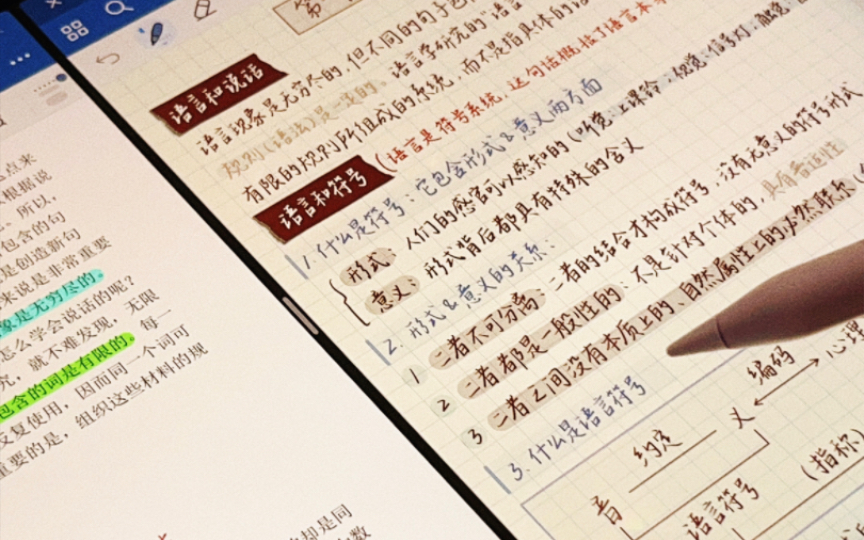 点来
根据说
所以，
包含的句
是创造新句
来说是非常重要
象是无穷尽的。
怎么学会说话的呢？
就不难发现，无限
包含的词是有限的。每一
反复使用，因而同一个词可
重要的是，组织这些材料的规
却是同
语言和说话
语言现象是无穷尽的，但不同的句子包
规则(语法)是一定的。语言学研究的"语言
有限的规则所组成的系统，而不是指具体的
语言和符号
(语言是符号系统，这句话概括了语言本
1.什么是符号：它包含形式&意义两方面
形式：人们的感官可以感知的
意义：形式背后都具有特殊的含义
2.形式&意义的关系：
1 二者不可分离：二者的结合才构成符号，没有无意义的符号形式
2 二者都是一般性的：不是针对个体的，具有普适性
3 二者之间没有本质上的、自然属性上的必然联系
3.什么是语言符号
音 约定 义 编码 心理
语言符号 (指称)